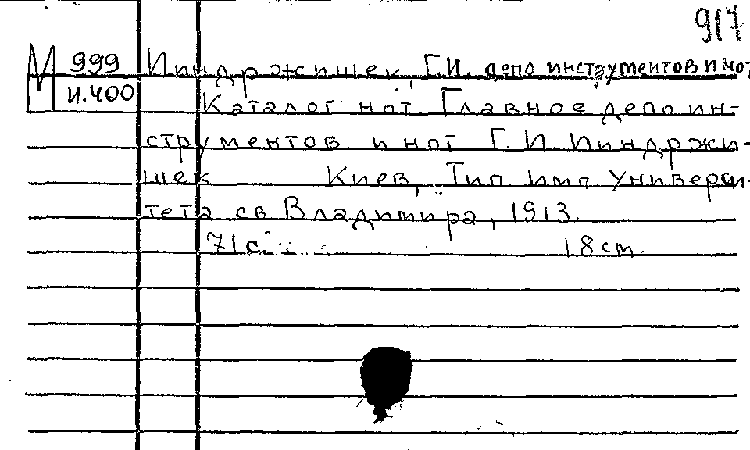 917
М 999 Индржишек, Г.И. депо инструментов и нот
И.400 Каталог нот. Главное депо ин-
струментов и нот Г. И Индржи-
шек Киев, Тип. Имп. Универси-
тета св Владимира, 1913.
71 с. 18 см